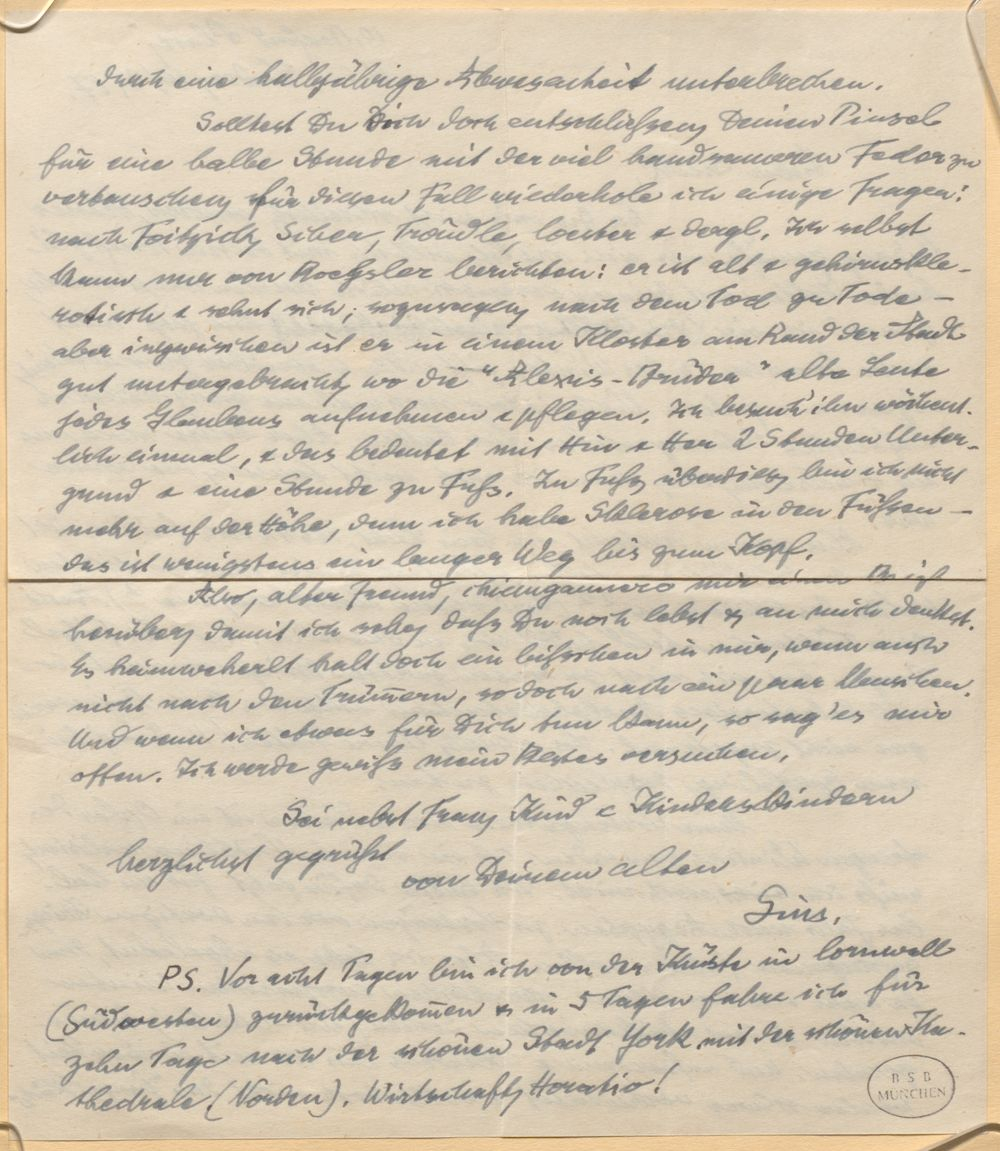 durch eine halbjährige Abwesenheit unterbrechen.
Solltest Du Dich doch entschließen, Deinen Pinsel
für eine halbe Stunde mit der viel handsameren Feder zu
vertauschen, für diesen Fall wiederhole ich einige Fragen:
nach Foitzick, Silver, Träudle, Coester & dergl. Ich selbst
kann nur von Roeßler berichten: er ist alt & gehirnskle-
rotisch & sehnt sich, sozusagen, nach dem Tod zu Tode –
aber inzwischen ist er in einem Kloster am Rand der Stadt
gut untergebracht, wo die "Alexis-Brüder" alte Leute
jedes Glaubens aufnehmen & pflegen. Ich besuch' ihn wöchent-
lich einmal, & das bedeutet mit Hin & Her 2 Stunden Unter-
grund & eine Stunde zu Fuß. Zu Fuß, überdies, bin ich nicht
mehr auf der Höhe, denn ich habe Sklerose in den Füßen –
das ist wenigstens ein langer Weg bis zum Kopf.
Also, alter Freund, mir einen
herüber, damit ich sehe, daß Du noch lebst & an mich denkst.
Es heimwehelt halt doch ein bißchen in mir, wenn auch
nicht nach den Trümmern, so doch nach ein paar Menschen.
Und wenn ich etwas für Dich tun kann, so sag' es mir
offen. Ich werde gewiß mein Bestes versuchen.
Sei nebst Frau, Kind & Kinderskindern
herzlichst gegrüßt
von Deinem alten
Sins.
PS. Vor acht Tagen bin ich von der Küste in Cornwall
(Südwesten) zurückgekom̅en & in 5 Tagen fahre ich für
zehn Tage nach der schönen Stadt York mit der schönen Ka-
thedrale (Norden). Wirtschaft, Horatio!
BSB
MÜNCHEN